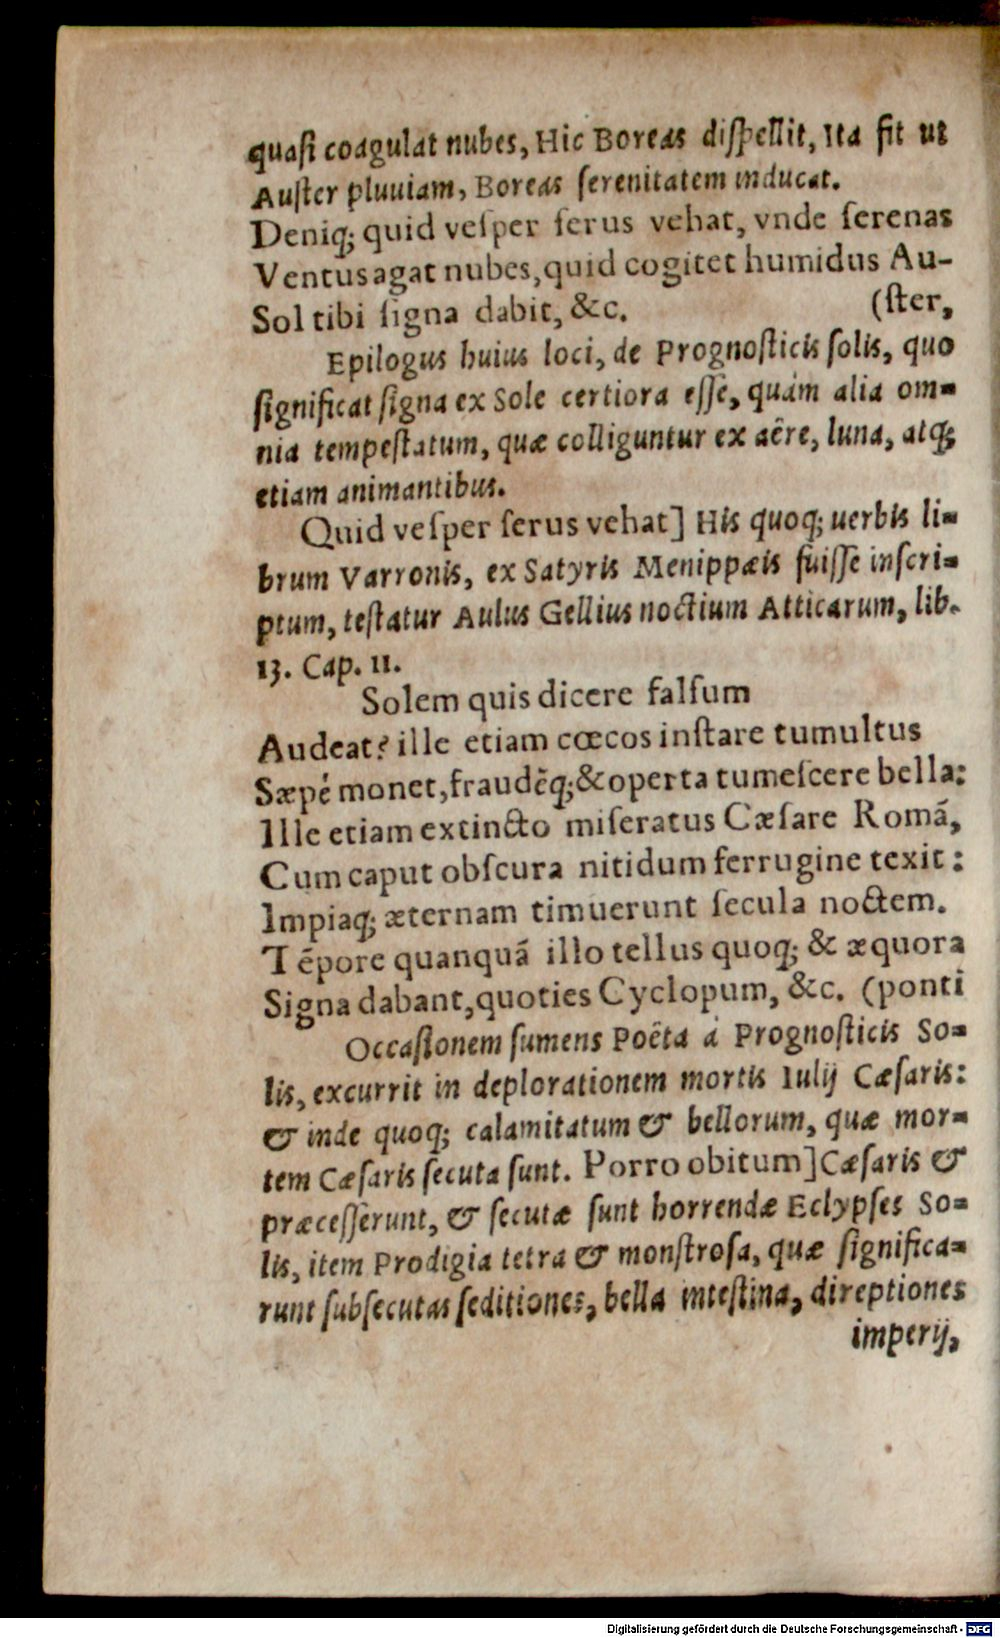 quaſi coagulat nubes, Hic Boreas diſpellit, Ita fit ut
Auſter pluuiam, Boreas ſerenitatem inducat.
Deniq; quid veſper ſerus vehat, vnde ſerenas
Ventus agat nubes, quid cogitet humidus Au-
Sol tibi ſigna dabit, &c. (ſter,
Epilogus huius loci, de Prognoſticis ſolis, quo
ſignificat ſigna ex Sole certiora eſſe, quàm alia om-
nia tempeſtatum, quæ colliguntur ex aëre, luna, atq;
etiam animantibus.
Quid veſper ſerus vehat] His quoq; uerbis li-
brum Varronis, ex Satyris Menippæis fuiſſe inſcri-
ptum, teſtatur Aulus Gellius noctium Atticarum, lib.
13. Cap. 11.
Solem quis dicere falſum
Audeat? ille etiam cœcos inſtare tumultus
Sæpé monet, fraudẽq; & operta tumeſcere bella:
Ille etiam extincto miſeratus Cæſare Romã,
Cum caput obſcura nitidum ferrugine texit:
Impiaq; æternam timuerunt ſecula noctem.
Tẽpore quanquã illo tellus quoq; & æquora
Signa dabant, quoties Cyclopum, &c. (ponti
Occaſionem ſumens Poëta à Prognoſticis So-
lis, excurrit in deplorationem mortis Iulij Cæſaris:
& inde quoq; calamitatum & bellorum, quæ mor-
tem Cæſaris ſecuta ſunt. Porro obitum] Cæſaris &
præceſſerunt, & ſecutæ ſunt horrendæ Eclypſes So-
lis, item Prodigia tetra & monſtroſa, quæ ſignifica-
runt ſubſecutas ſeditiones, bella inteſtina, direptiones
imperij,
Digitalisierung gefördert durch die Deutsche Forschungsgemeinschaft - DFG